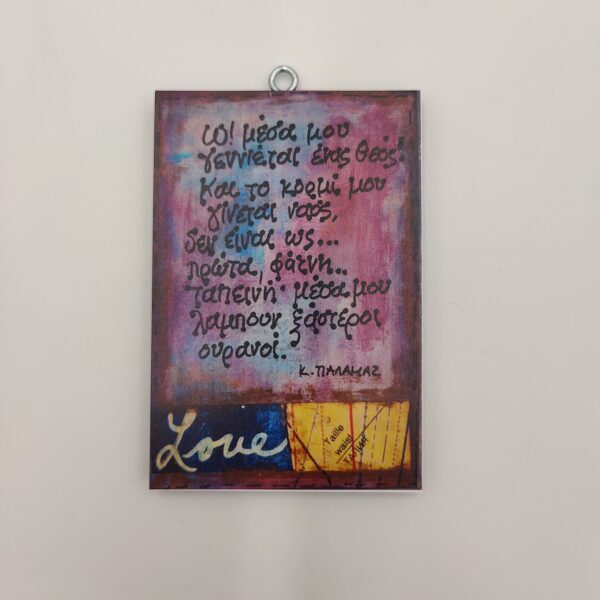 Ω! μέσα μου
γεννιέται ένας θεός!
Και το κορμί μου
γίνεται ναός,
δεν είναι ως...
πρώτα, φάτνη..
ταπεινή· μέσα μου
λάμπουν ξάστεροι
ουρανοί.
Κ. ΠΑΛΑΜΑΣ
Love
Taille
waist